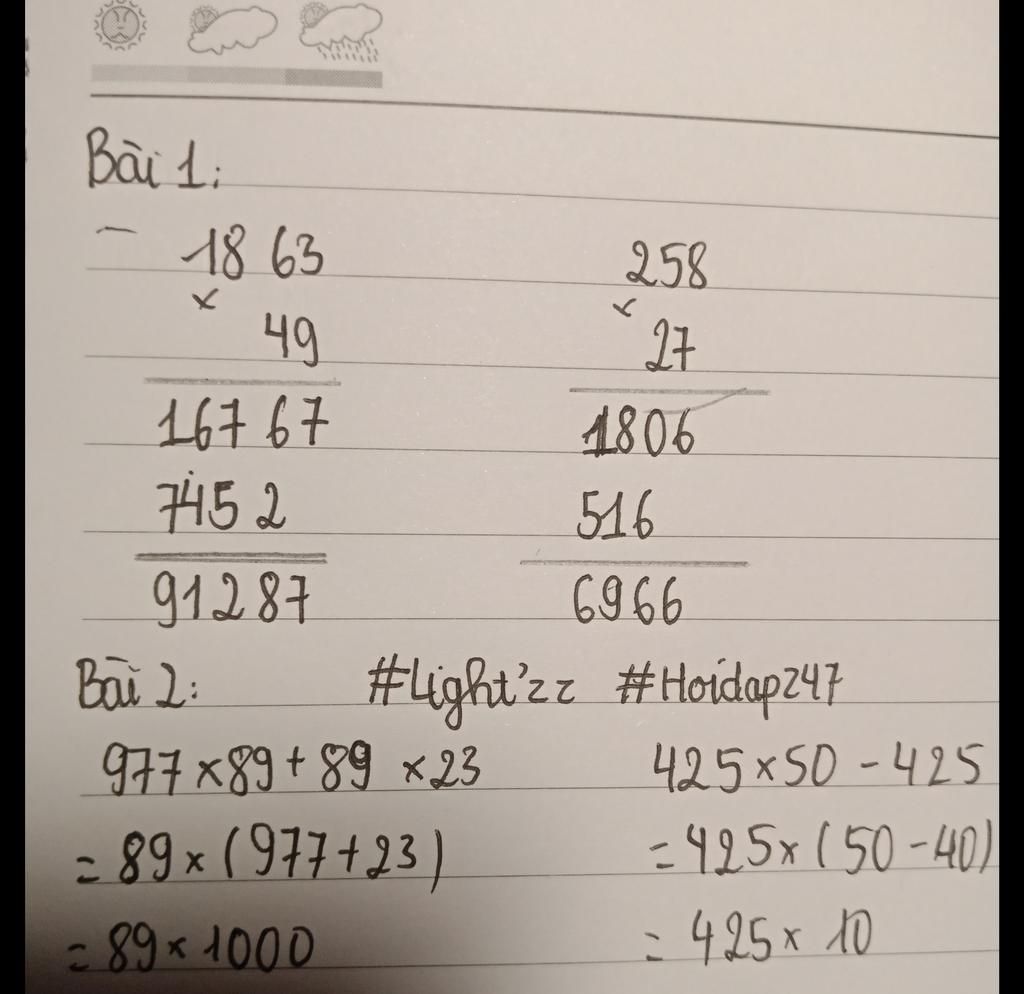 Bài 1:
- 1863 258
x 49 x 27
16767 1806
7452 516
91287 6966
Bài 2: #Light'zz #Hoidap247
977 x 89 + 89 x 23 425 x 50 - 425
= 89 x (977 + 23) = 425 x (50 - 40)
= 89 x 1000 = 425 x 10